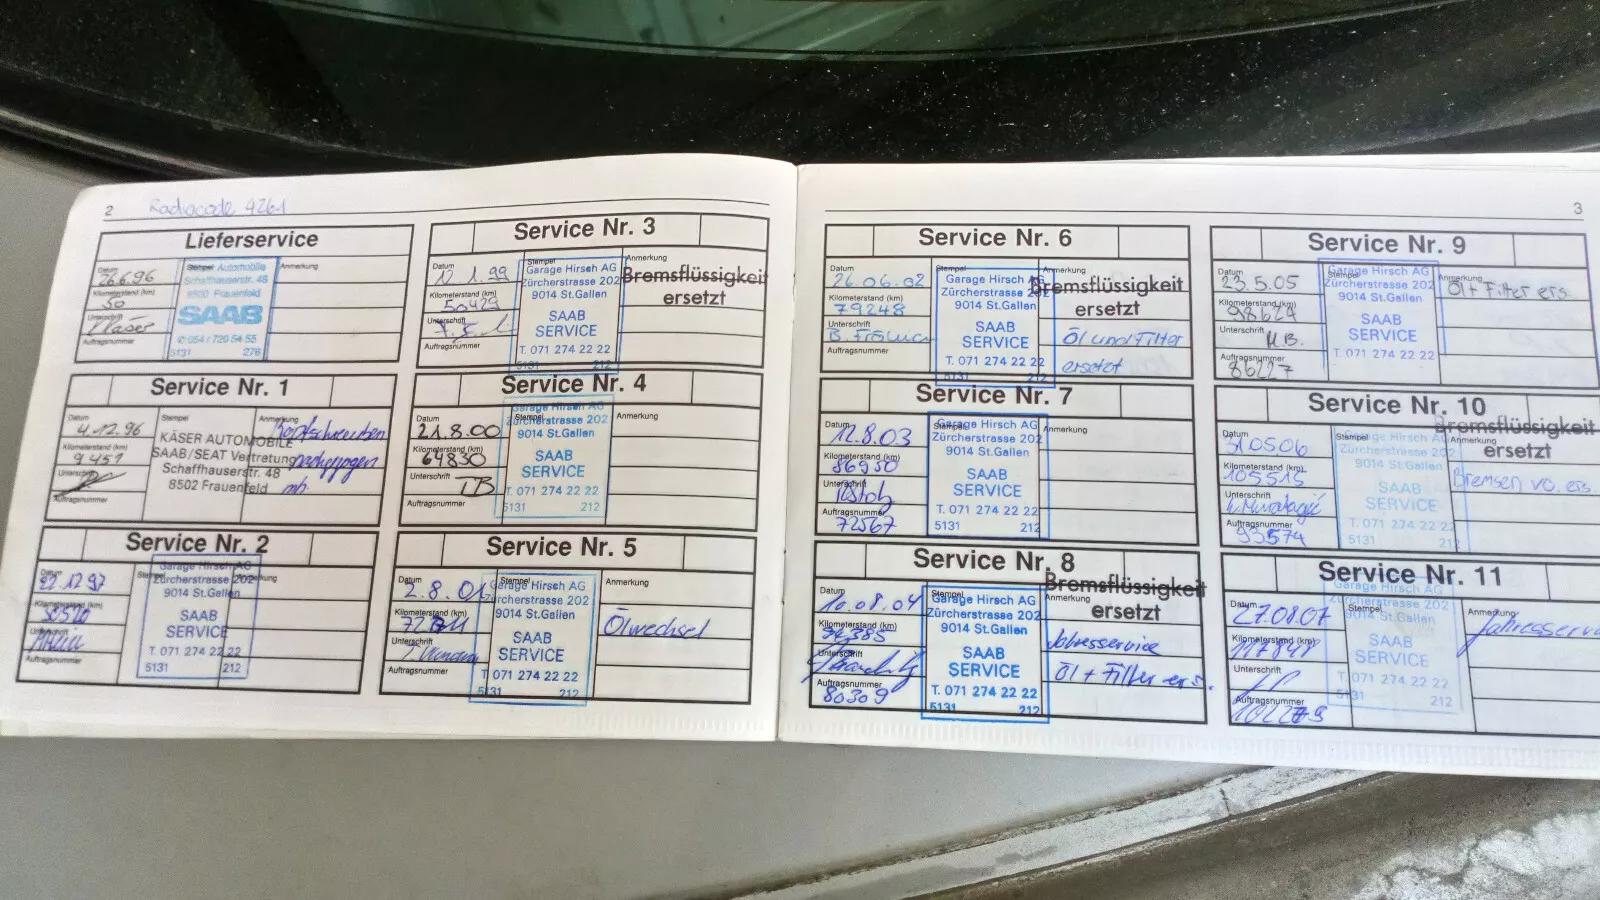 2
Radiocode 4261
Lieferservice
Datum
26.6.96
Kilometerstand (km)
50
Unterschrift
Käser
Auftragsnummer
Stempel
Automobile
Schaffhauserstr. 48
8500 Frauenfeld
SAAB
✆ 054 / 720 54 55
5131 276
Anmerkung
Service Nr. 1
Datum
4.12.96
Kilometerstand (km)
9451
Unterschrift
Auftragsnummer
Stempel
KÄSER AUTOMOBILE
SAAB/SEAT Vertretung
Schaffhauserstr. 48
8502 Frauenfeld
Anmerkung
Kopfschrauben
nachgezogen
Service Nr. 2
Datum
22.12.97
Kilometerstand (km)
30520
Unterschrift
Auftragsnummer
Garage Hirsch AG
Zürcherstrasse 202
9014 St.Gallen
SAAB
SERVICE
T. 071 274 22 22
5131 212
Service Nr. 3
Datum
12.1.99
Kilometerstand (km)
50429
Unterschrift
Auftragsnummer
Stempel
Garage Hirsch AG
Zürcherstrasse 202
9014 St.Gallen
SAAB
SERVICE
T. 071 274 22 22
5131 212
Anmerkung
Bremsflüssigkeit
ersetzt
Service Nr. 4
Datum
21.8.00
Kilometerstand (km)
64830
Unterschrift
TB
Auftragsnummer
Stempel
Garage Hirsch AG
Zürcherstrasse 202
9014 St.Gallen
SAAB
SERVICE
T. 071 274 22 22
5131 212
Anmerkung
Service Nr. 5
Datum
2.8.01
Kilometerstand (km)
Unterschrift
Auftragsnummer
Stempel
Garage Hirsch AG
Zürcherstrasse 202
9014 St.Gallen
SAAB
SERVICE
T. 071 274 22 22
5131 212
Anmerkung
Ölwechsel
3
Service Nr. 6
Datum
26.06.02
Kilometerstand (km)
79248
Unterschrift
Auftragsnummer
Stempel
Garage Hirsch AG
Zürcherstrasse 202
9014 St.Gallen
SAAB
SERVICE
T. 071 274 22 22
5131 212
Anmerkung
Bremsflüssigkeit
ersetzt
Öl und Filter
ersetzt
Service Nr. 7
Datum
12.8.03
Kilometerstand (km)
86950
Unterschrift
Auftragsnummer
72567
Stempel
Garage Hirsch AG
Zürcherstrasse 202
9014 St.Gallen
SAAB
SERVICE
T. 071 274 22 22
5131 212
Anmerkung
Service Nr. 8
Datum
10.08.04
Kilometerstand (km)
Unterschrift
Auftragsnummer
80309
Stempel
Garage Hirsch AG
Zürcherstrasse 202
9014 St.Gallen
SAAB
SERVICE
T. 071 274 22 22
5131 212
Bremsflüssigkeit
Anmerkung
ersetzt
Jahresservice
Öl + Filter ers.
Service Nr. 9
Datum
23.5.05
Kilometerstand (km)
98624
Unterschrift
M.B.
Auftragsnummer
86227
Stempel
Garage Hirsch AG
Zürcherstrasse 202
9014 St.Gallen
SAAB
SERVICE
T. 071 274 22 22
5131 212
Anmerkung
Öl + Filter ers.
Service Nr. 10
Datum
310506
Kilometerstand (km)
105515
Unterschrift
Auftragsnummer
93574
Stempel
Garage Hirsch AG
Zürcherstrasse 202
9014 St.Gallen
SAAB
SERVICE
T. 071 274 22 22
5131 212
Bremsflüssigkeit
Anmerkung
ersetzt
Bremsen vo. ers.
Service Nr. 11
Datum
27.08.07
Kilometerstand (km)
117848
Unterschrift
Auftragsnummer
Stempel
Garage Hirsch AG
Zürcherstrasse 202
9014 St.Gallen
SAAB
SERVICE
T. 071 274 22 22
5131 212
Anmerkung